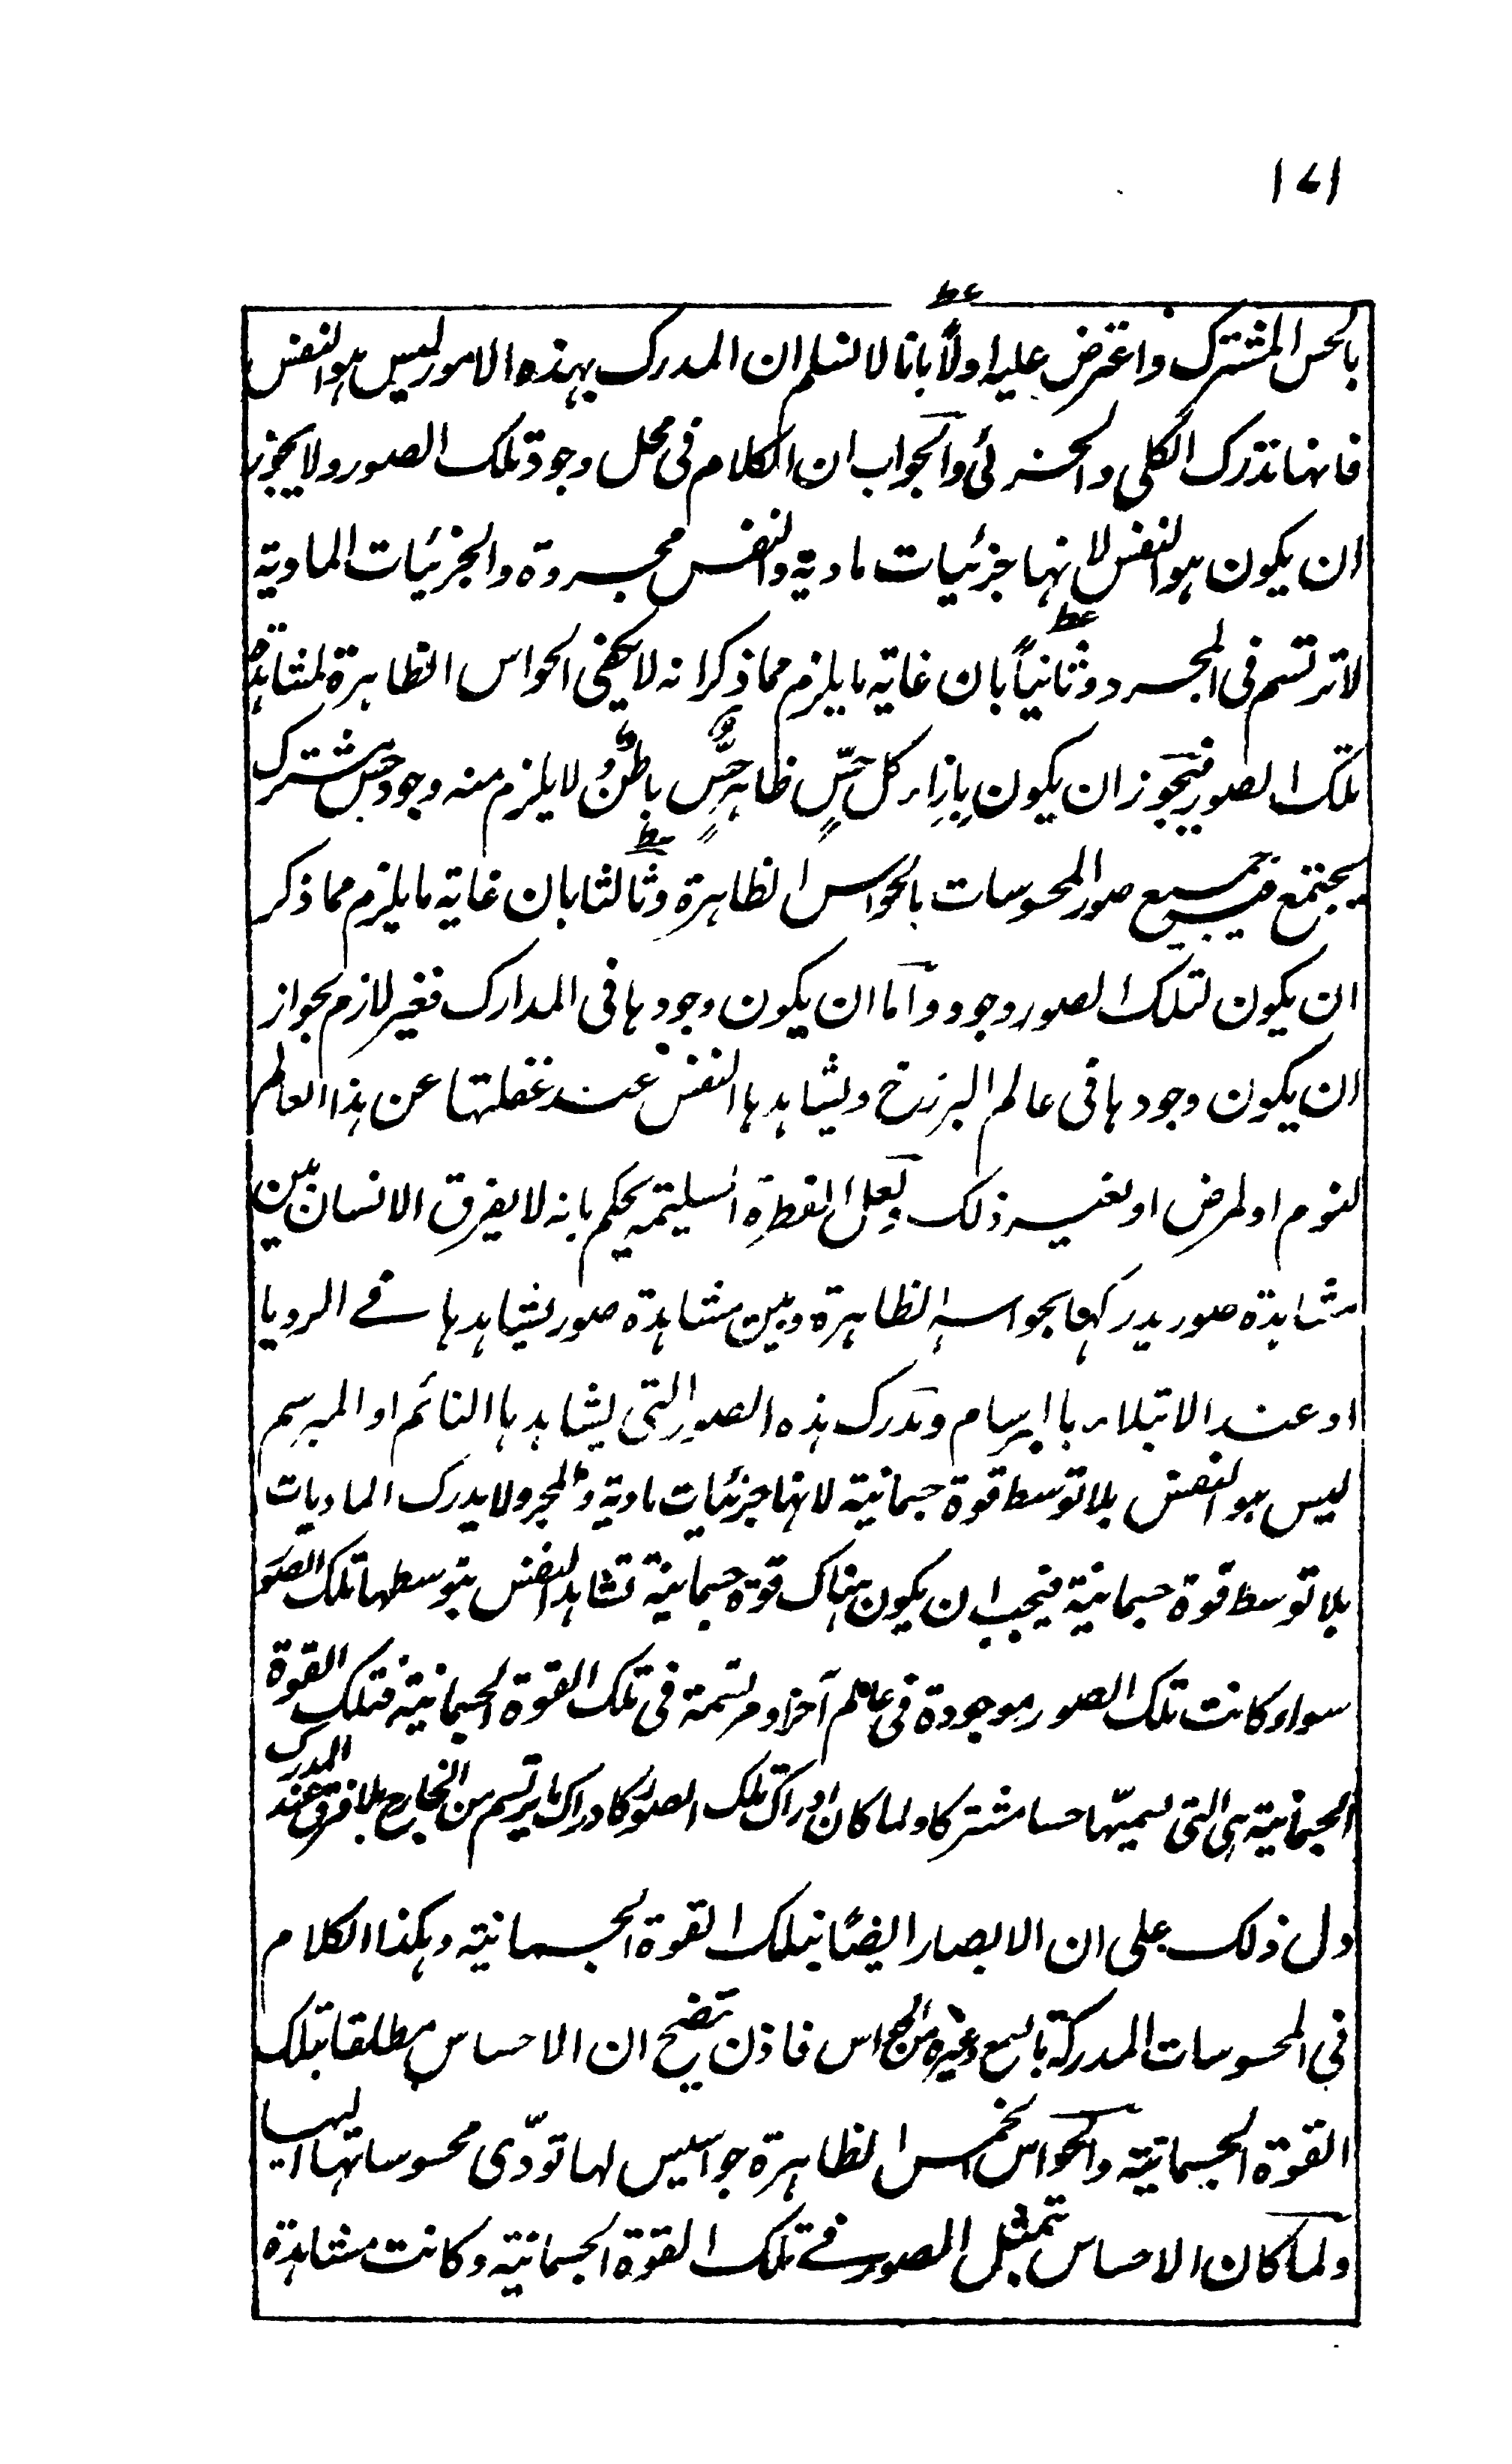 ۱۷۱
بالحس المشترک واعترض علیه اولاً بانا لا نسلم ان المدرک بهذه الامور لیس هو النفس
فانها تدرک الکلی والجزئی والجواب ان الکلام فی محل وجود تلک الصور ولا یجوز
ان یکون هو النفس لانها جزئیات مادیة والنفس مجردة والجزئیات المادیة
لا ترتسم فی المجرد وثانیاً بان غایة ما یلزم مما ذکر انه لا یکفی الحواس الظاهرة لمشاهدة
تلک الصور فیجوز ان یکون بازاء کل حسٍّ ظاهرٍ حسٌّ باطنٌ ولا یلزم منه وجود حس مشترک
یجتمع فیه جمیع صور المحسوسات بالحواس الظاهرة وثالثا بان غایة ما یلزم مما ذکر
ان یکون لتلک الصور وجود واما ان یکون وجودها فی المدارک فغیر لازم لجواز
ان یکون وجودها فی عالم البرزخ ویشاهدها النفس عند غفلتها عن هذا العالم
لنوم او لمرض او لغیر ذلک ولعل الفطرة السلیمة یحکم بانه لا یفرق الانسان بین
مشاهدة صور یدرکها بحواسه الظاهرة وبین مشاهدة صور یشاهدها فے الرویا
او عند الابتلاء بالبرسام ومدرک هذه الصور التی یشاهدها النائم او المبرسم
لیس هو النفس بلا توسط قوة جسمانیة لانها جزئیات مادیة والمجرد لا یدرک المادیات
بلا توسط قوة جسمانیة فیجب ان یکون هناک قوة جسمانیة تشاهد النفس بتوسطها تلک الصور
سواء کانت تلک الصور موجودة فی عالم آخر او مرتسمة فی تلک القوة الجسمانیة فتلک القوة
الجسمانیة هی التی نسمیّها حسا مشترکا ولما کان ادراک تلک الصور کادراک ما یرتسم من الخارج بلا فرق عند المدرک
دل ذلک علی ان الابصار ایضاً بتلک القوة الجسمانیة وهکذا الکلام
فی المحسوسات المدرکة بالسمع وغیره من الحواس فاذن تضح ان الاحساس مطلقا بتلک
القوة الجسمانیة والحواس الخمس الظاهرة جواسیس لها تودّی محسوساتها الیها
ولما کان الاحساس تمثل الصور فے تلک القوة الجسمانیة وکانت مشاهدة